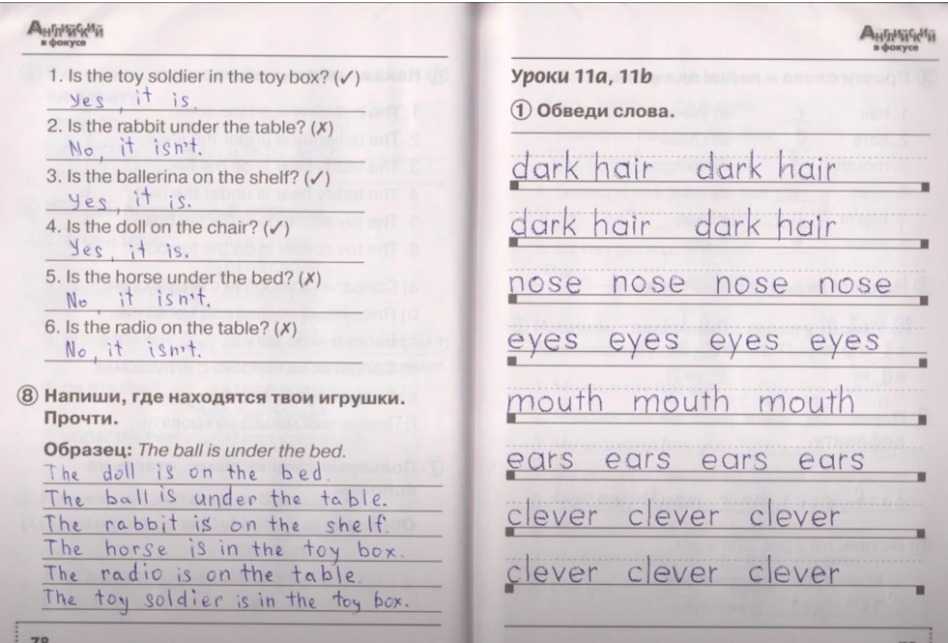 Английский
в фокусе
1. Is the toy soldier in the toy box? (✓)
Yes, it is.
2. Is the rabbit under the table? (✗)
No, it isn't.
3. Is the ballerina on the shelf? (✓)
Yes, it is.
4. Is the doll on the chair? (✓)
Yes, it is.
5. Is the horse under the bed? (✗)
No it isn't.
6. Is the radio on the table? (✗)
No, it isn't.
⑧ Напиши, где находятся твои игрушки.
Прочти.
Образец: The ball is under the bed.
The doll is on the bed.
The ball is under the table.
The rabbit is on the shelf.
The horse is in the toy box.
The radio is on the table.
The toy soldier is in the toy box.
78
Английский
в фокусе
Уроки 11a, 11b
① Обведи слова.
dark hair dark hair
dark hair dark hair
nose nose nose nose
eyes eyes eyes eyes
mouth mouth mouth
ears ears ears ears
clever clever clever
clever clever clever